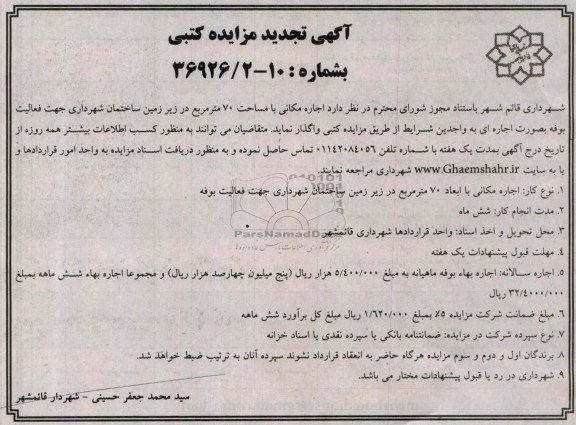 آگهی تجدید مزایده کتبی
بشماره : ۱۰-۳۶۹۲۶/۲
شهرداری قائم شهر باستناد مجوز شورای محترم در نظر دارد اجاره مکانی با مساحت ۷۰ مترمربع در زیر زمین ساختمان شهرداری جهت فعالیت
بوفه بصورت اجاره ای به واجدین شرایط از طریق مزایده کتبی واگذار نماید. متقاضیان می توانند به منظور کسب اطلاعات بیشتر همه روزه از
تاریخ درج آگهی بمدت یک هفته با شماره تلفن ۰۱۱۴۲۰۸۴۰۵۶ تماس حاصل نموده و به منظور دریافت اسناد مزایده به واحد امور قراردادها و
یا به سایت www.Ghaemshahr.ir شهرداری مراجعه نمایند.
۱. نوع کار: اجاره مکانی با ابعاد ۷۰ مترمربع در زیر زمین ساختمان شهرداری جهت فعالیت بوفه
۲. مدت انجام کار: شش ماه
۳. محل تحویل و اخذ اسناد: واحد قراردادها شهرداری قائمشهر
۴. مهلت قبول پیشنهادات یک هفته
۵. اجاره سالانه: اجاره بهاء بوفه ماهیانه به مبلغ ۵/۴۰۰/۰۰۰ هزار ریال (پنج میلیون چهارصد هزار ریال) و مجموعا اجاره بهاء شش ماهه بمبلغ
۳۲/۴۰۰۰/۰۰۰ ریال
۶. مبلغ ضمانت شرکت مزایده ۵٪ بمبلغ ۱/۶۲۰/۰۰۰ ریال مبلغ کل برآورد شش ماهه
۷. نوع سپرده شرکت در مزایده: ضمانتنامه بانکی یا سپرده نقدی یا اسناد خزانه
۸. برندگان اول و دوم و سوم مزایده هرگاه حاضر به انعقاد قرارداد نشوند سپرده آنان به ترتیب ضبط خواهد شد.
۹. شهرداری در رد یا قبول پیشنهادات مختار می باشد.
سید محمد جعفر حسینی - شهردار قائمشهر
ParsNamadData